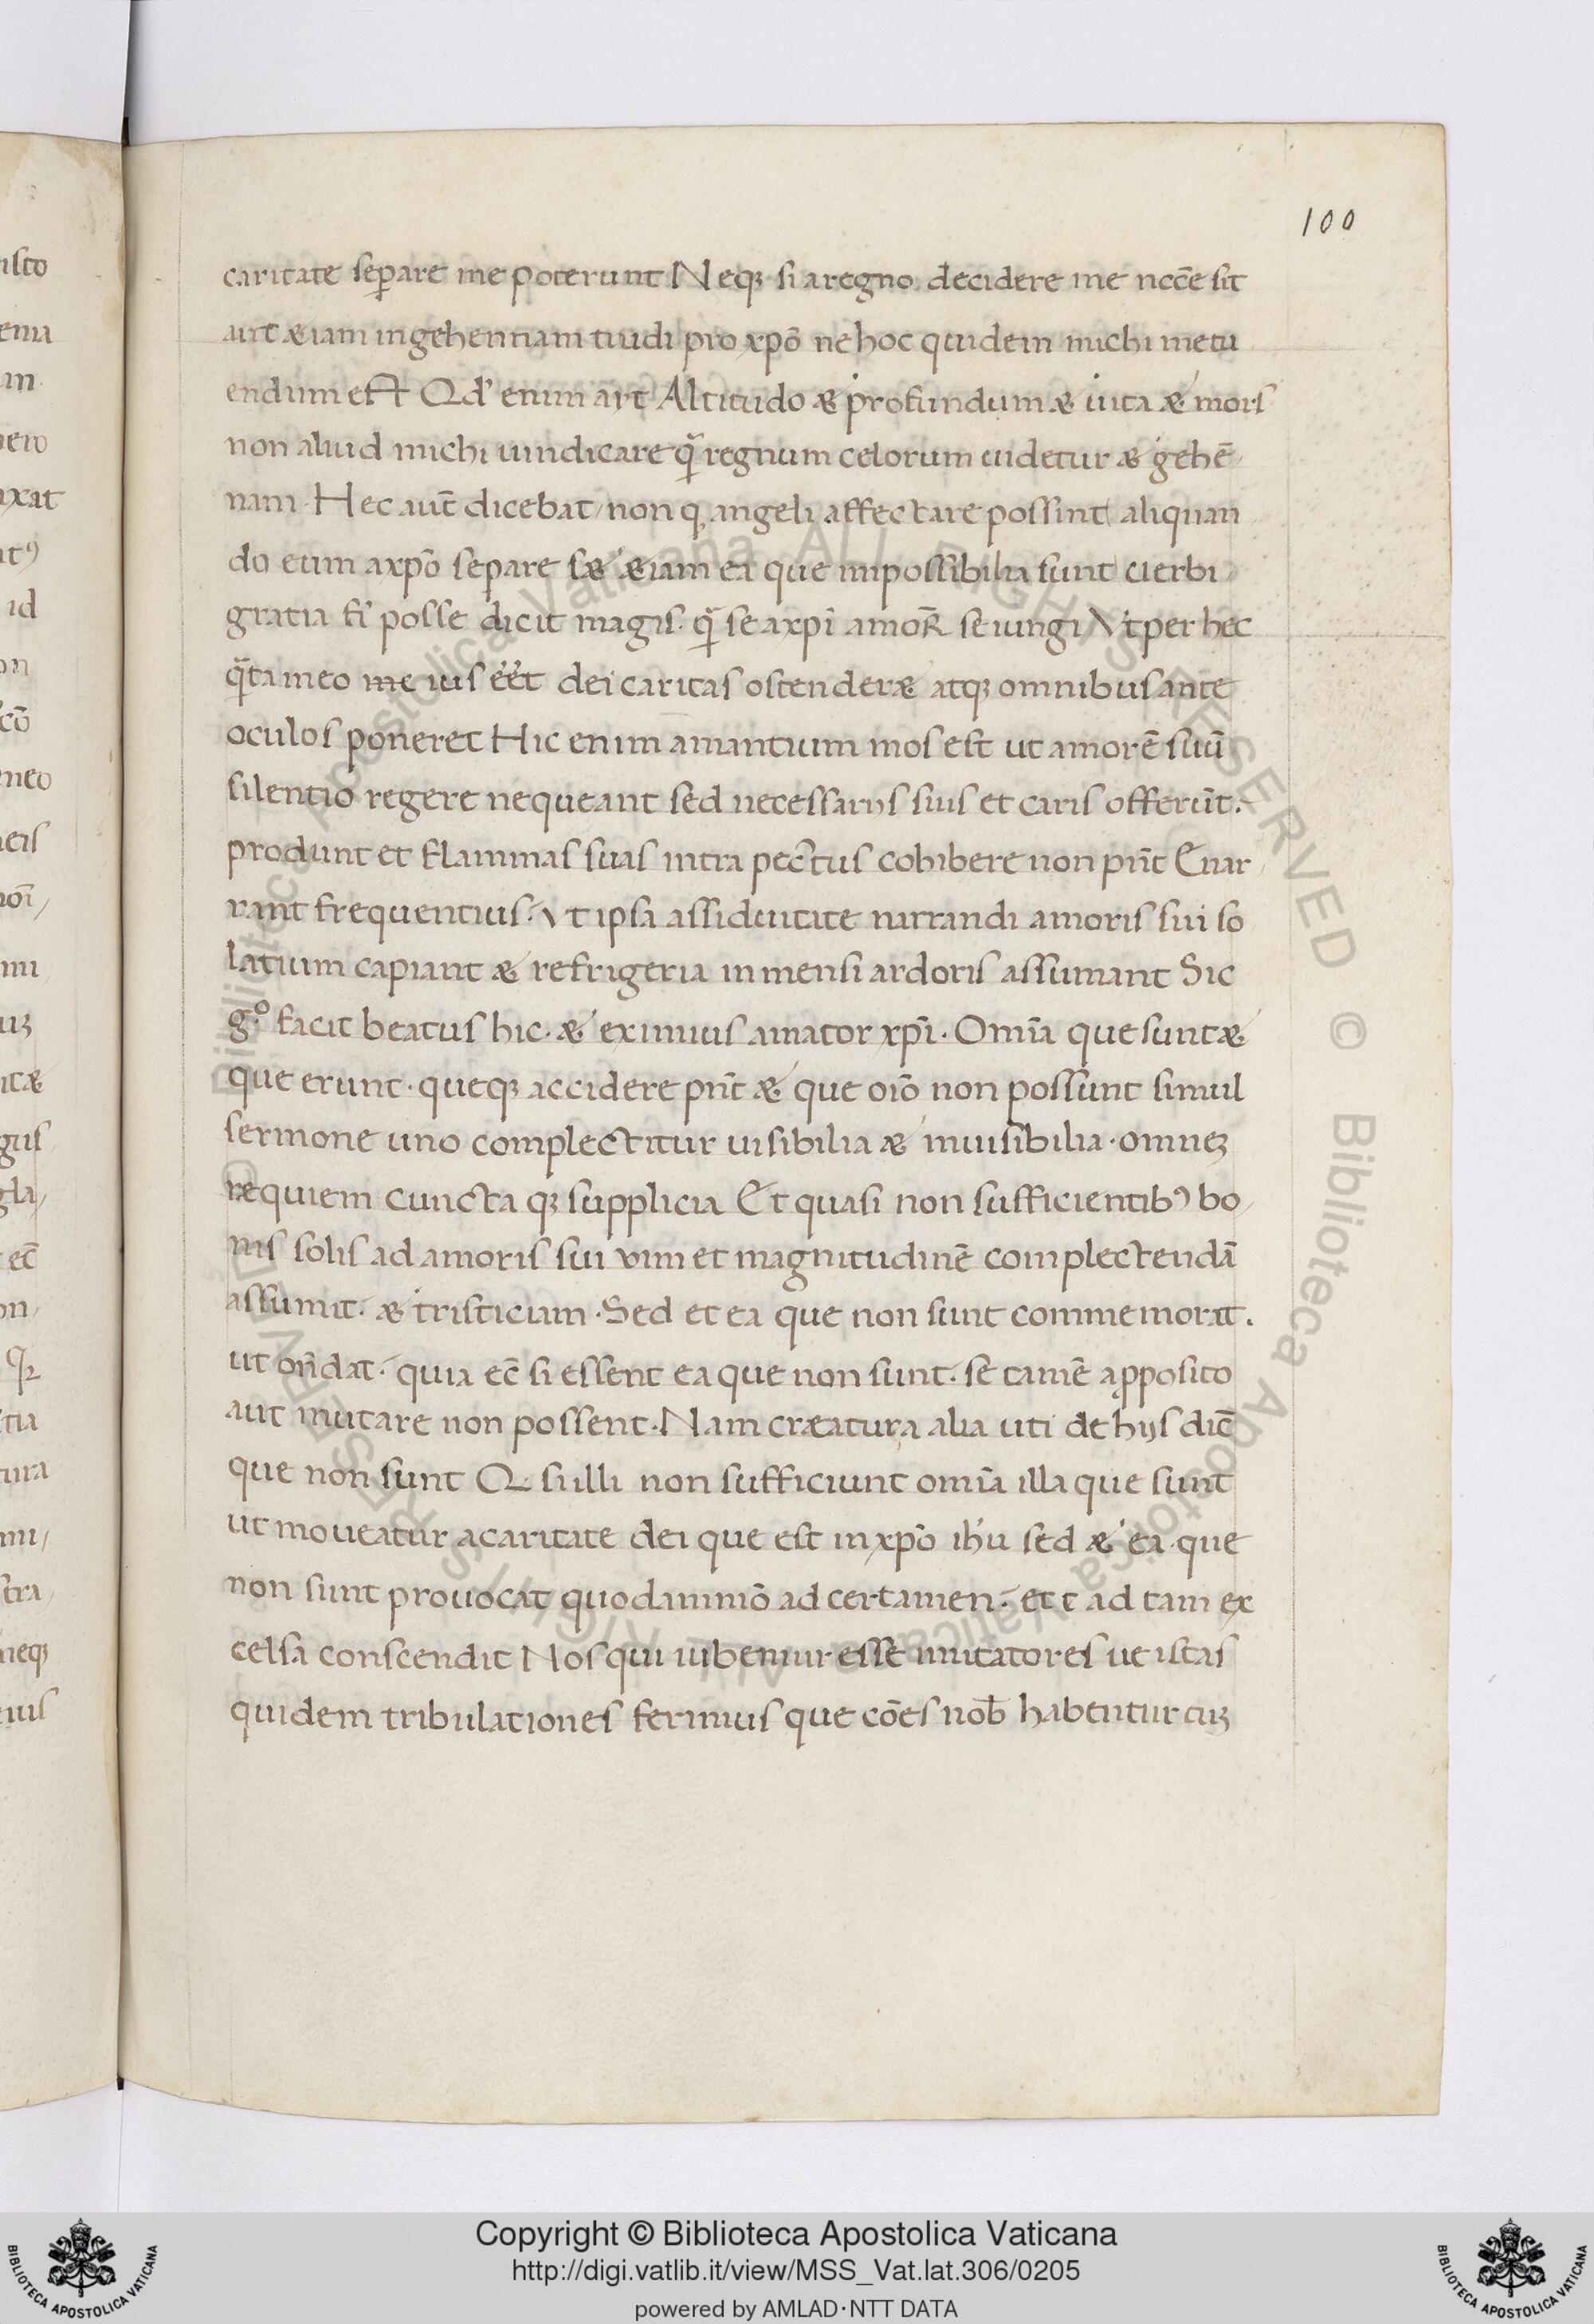 100
caritate seꝑare me poterunt Neqꝫ si a regno decidere me nc̄c̄e sit
aut æiam in gehennam trudi pro xp̄o ne hoc quidem michi metu
endum est Qd' enim ait Altitudo æ profundum æ uita æ mors
non aliud michi uindicare q̄ regnum celorum uidetur æ gehē
nam. Hec aut̄ dicebat non qꝫ angeli affectare possint aliquan
do eum a xp̄o separe sæ æiam ea que impossibilia sunt uerbi
gratia fi' posse dicit magis. q̄ se a xp̄i amoꝝ seiungi Vt per hec
q̄ta meo me ius e'e't dei caritas ostenderæ atqꝫ omnibus ante
oculos poneret Hic enim amantium mos est ut amorē suū
silentio regere nequeant sed necessarijs suis et caris offerūt.
produnt et flammas suas intra pectus cohibere non pn̄t Enar
rant frequentius. Vt ipsa assiduitate narrandi amoris sui so
latium capiant æ refrigeria inmensi ardoris assumant Sic
g.º facit beatus hic. æ eximius amator xp̄i. Omīa que sunt æ
que erunt. queqꝫ accidere pn̄t æ que oīo non possunt simul
sermone uno complectitur uisibilia æ inuisibilia. omneꝫ
requiem cuncta qꝫ supplicia Et quasi non sufficientibꝰ bo
nis solis ad amoris sui vim et magnitudinē complectendā
assumit. æ tristiciam. Sed et ea que non sunt commemorat.
ut on̄dat. quia ec̄ si essent ea que non sunt. se tamē apposito
aut mutare non possent. Nam cræatura alia uti de hijs dic̄
que non sunt Q si illi non sufficiunt omīa illa que sunt
ut moueatur a caritate dei que est in xp̄o ih'u sed æ ea que
non sunt prouocat quodammō ad certamen. et t ad tam ex
celsa conscendit Nos qui iubemur esse imitatores ue istas
quidem tribulationes fermius que cōes nob̄ habentur cuꝫ
Copyright © Biblioteca Apostolica Vaticana
http://digi.vatlib.it/view/MSS_Vat.lat.306/0205
powered by AMLAD·NTT DATA